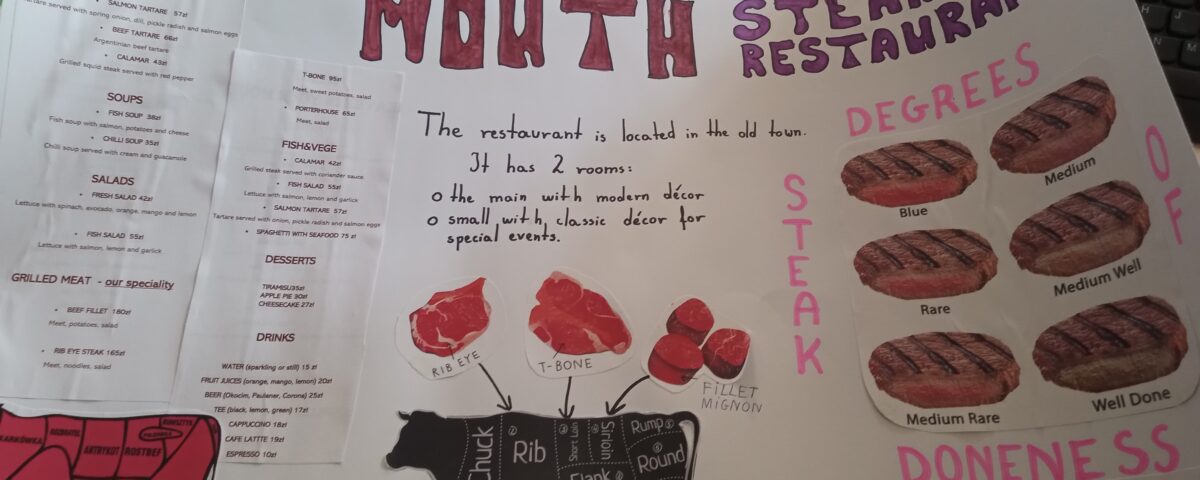 SALMON TARTARE 57zł
Tartare served with spring onion, dill, pickle radish and salmon eggs
• BEEF TARTARE 66zł
Argentinian beef tartare
• CALAMAR 43zł
Grilled squid steak served with red pepper
SOUPS
• FISH SOUP 38zł
Fish soup with salmon, potatoes and cheese
• CHILLI SOUP 35zł
Chilli soup served with cream and guacamole
SALADS
• FRESH SALAD 42zł
Lettuce with spinach, avocado, orange, mango and lemon
• FISH SALAD 55zł
Lettuce with salmon, lemon and garlick
GRILLED MEAT - our speciality
• BEEF FILLET 180zł
Meet, potatoes, salad
• RIB EYE STEAK 165zł
Meet, noodles, salad
T-BONE 95zł
Meet, sweet potatoes, salad
• PORTERHOUSE 65zł
Meet, salad
FISH&VEGE
• CALAMAR 42zł
Grilled steak served with coriander sauce
• FISH SALAD 55zł
Lettuce with salmon, lemon and garlick
• SALMON TARTARE 57zł
Tartare served with onion, pickle radish and salmon eggs
• SPAGHETTI WITH SEAFOOD 75 zł
DESSERTS
TIRAMISU35zł
APPLE PIE 30zł
CHEESECAKE 27zł
DRINKS
WATER (sparkling or still) 15 zł
FRUIT JUICES (orange, mango, lemon) 20zł
BEER (Okocim, Paulaner, Corona) 25zł
TEE (black, lemon, green) 17zł
CAPPUCCINO 18zł
CAFE LATTTE 19zł
ESPRESSO 10zł
MOUTH
RESTAURA
The restaurant is located in the old town.
It has 2 rooms:
o the main with modern décor
o small with, classic décor for
special events.
RIB EYE
T-BONE
FILLET
MIGNON
Chuck
Rib
Short Loin
Sirloin
Rump
Round
Flank
ANTRYKOT
ROSTBEF
DEGREES
OF
STEAK
DONENESS
Blue
Medium
Rare
Medium Well
Medium Rare
Well Done